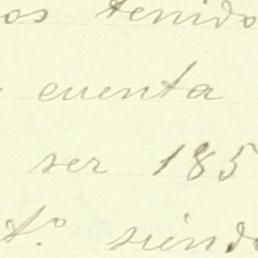 os tenido
cuenta
ser 185
siendo